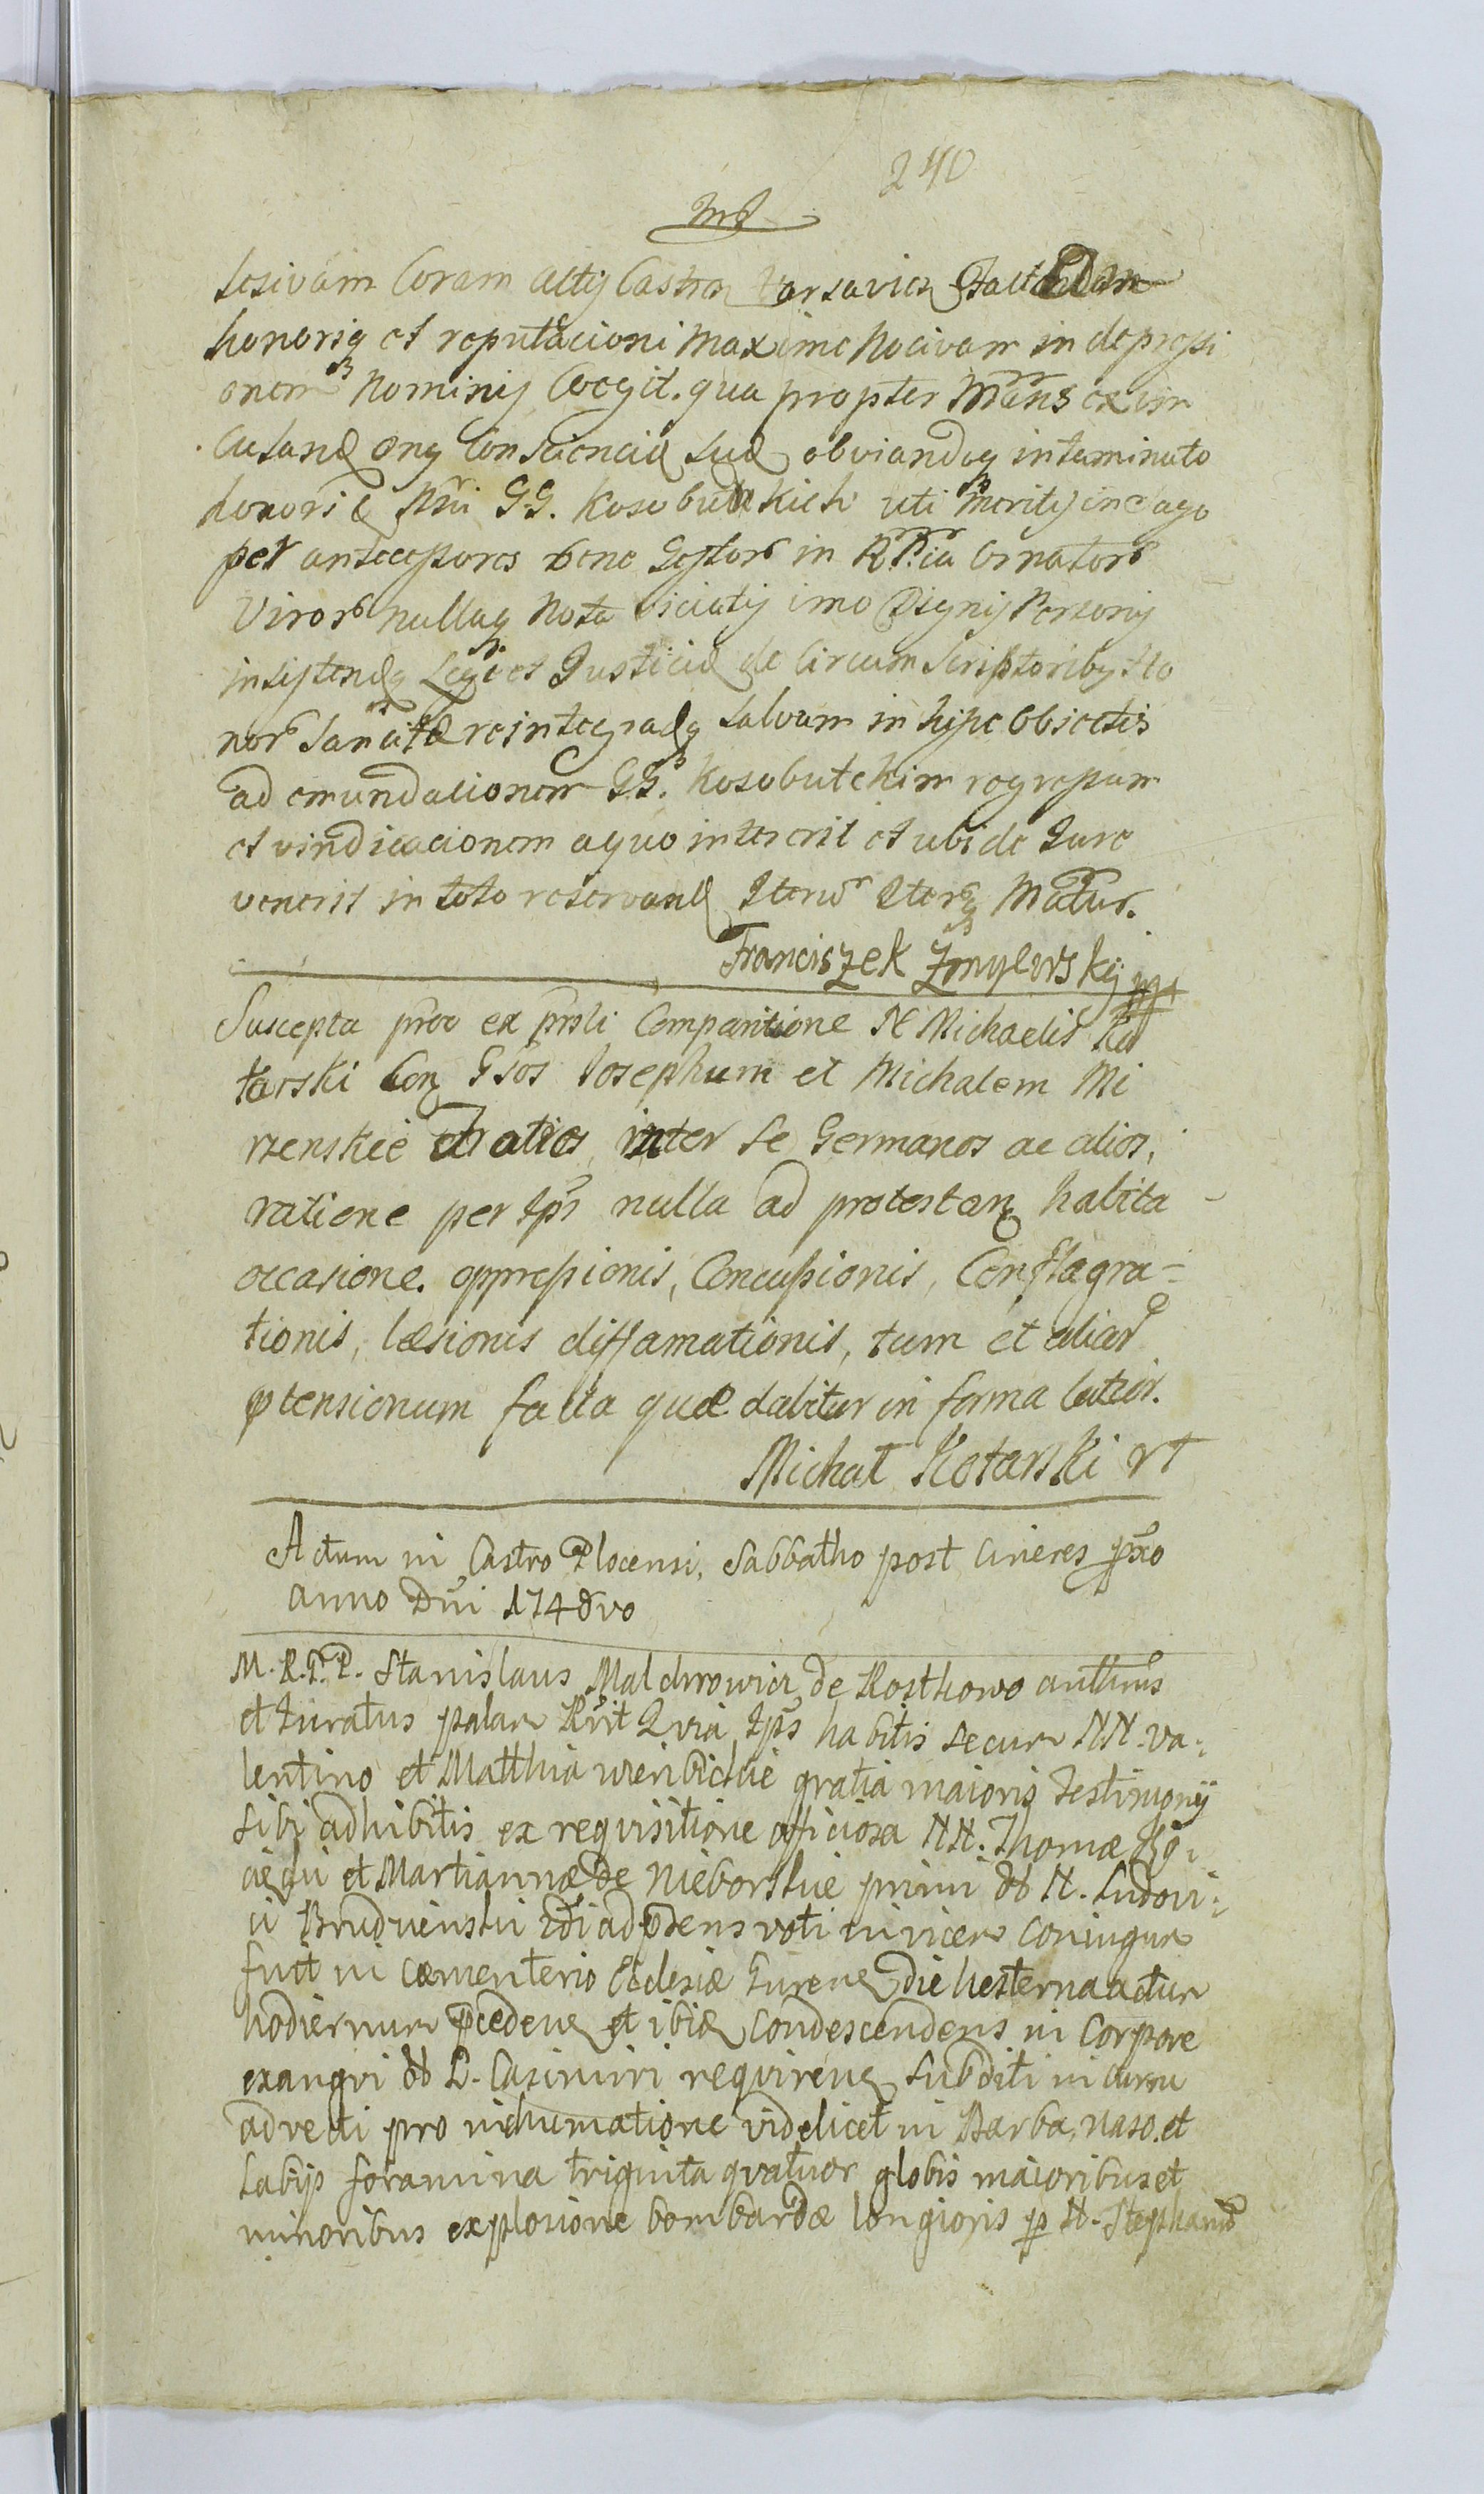 240
lesivam Coram actis Castren Varsavien
honoriq et reputacioni maxime Nocivam in depressi
onem Nominis Coegit. qua propter Mans ex im
Culand Consciencia sua obviandoq intaminato
honori GG. Kosobudzkich uti meritis
per antecessores bene Gestor in Ornator
Viror nullaq Nota viciatis imo Dignis Personis
insistendo Legi et Justicia de Circum Scriptoribus Ho
nor reintegradq salvam in hisce Obiectis
ad emundationem GG. Kosobutckim regressum
et vindicacionem aquo intererit et ubi de Jure
venerit in toto reservand Iteru Iterq Matur.
Franciszek Zmylewski mp
Suscepta prõo ex prsli Comparitione N Michaelis Ko
tarski Con Gsos Josephum et Michalem Mi
rzenskie et alios inter se Germanos ac alios,
ratione per Ips nulla ad protestan habita
occasione. oppressionis, Concussionis, Conflagra-
tionis, læsionis diffamationis, tum et aliar
ptensionum facta quæ dabitur in forma latior.
Michał Kotarski rt
Actum in Castro Plocensi, Sabbatho post Cineres pxo
anno Dni 1748vo
M. R. T. P. Stanislaus Malchrowicz de Rosthowo authus
et Juratus palam Rvit Quia Ips habitis secum NN. Va-
lentino et Matthia Wierzbickie gratia maioris Testimonij
sibi adhibitis ex requisitione officiosa NN. Thomæ
et Martiannæ de Nieborskie primi N. Ludovi-
ci Brudnienskii 2di ad præsens voti invicem Coniugum
fuit in Cæmenterio Ecclesiæ Gurenen die hesterna actum
hodiernum pcedenen et ibid Condescendens in Corpore
exangvi L. Casimiri requiren subditi in curru
advecti pro inhumatione videlicet in Barba, naso. et
Labijs foramina triginta qvatuor globis maioribus et
minoribus explosione bombardæ longioris p N. Stephanu